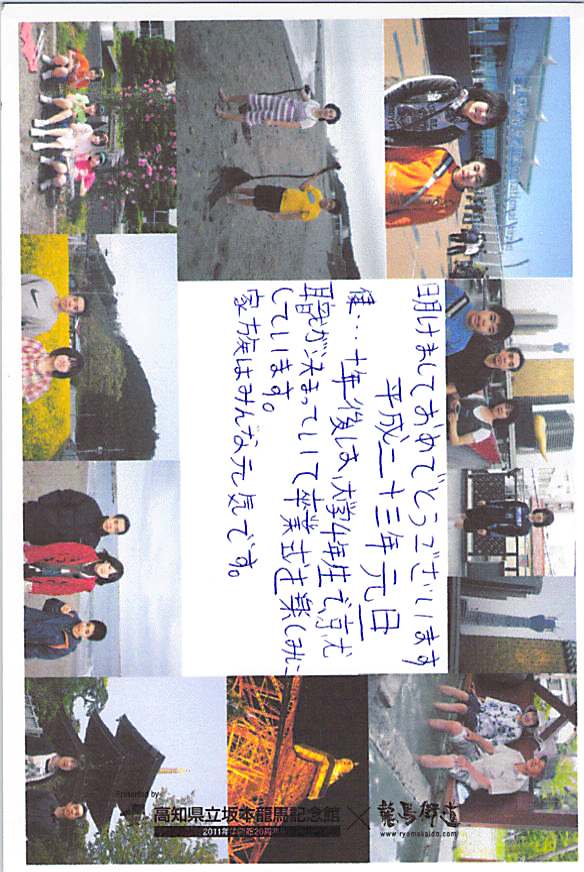 明けましておめでとうございます
平成二十三年元旦
僕…十年後は、大学4年生で就
職が決まっていて卒業式を楽しみに
しています。
家族はみんな元気です。
Presented by
高知県立坂本龍馬記念館×龍馬街道
www.ryomakaido.com